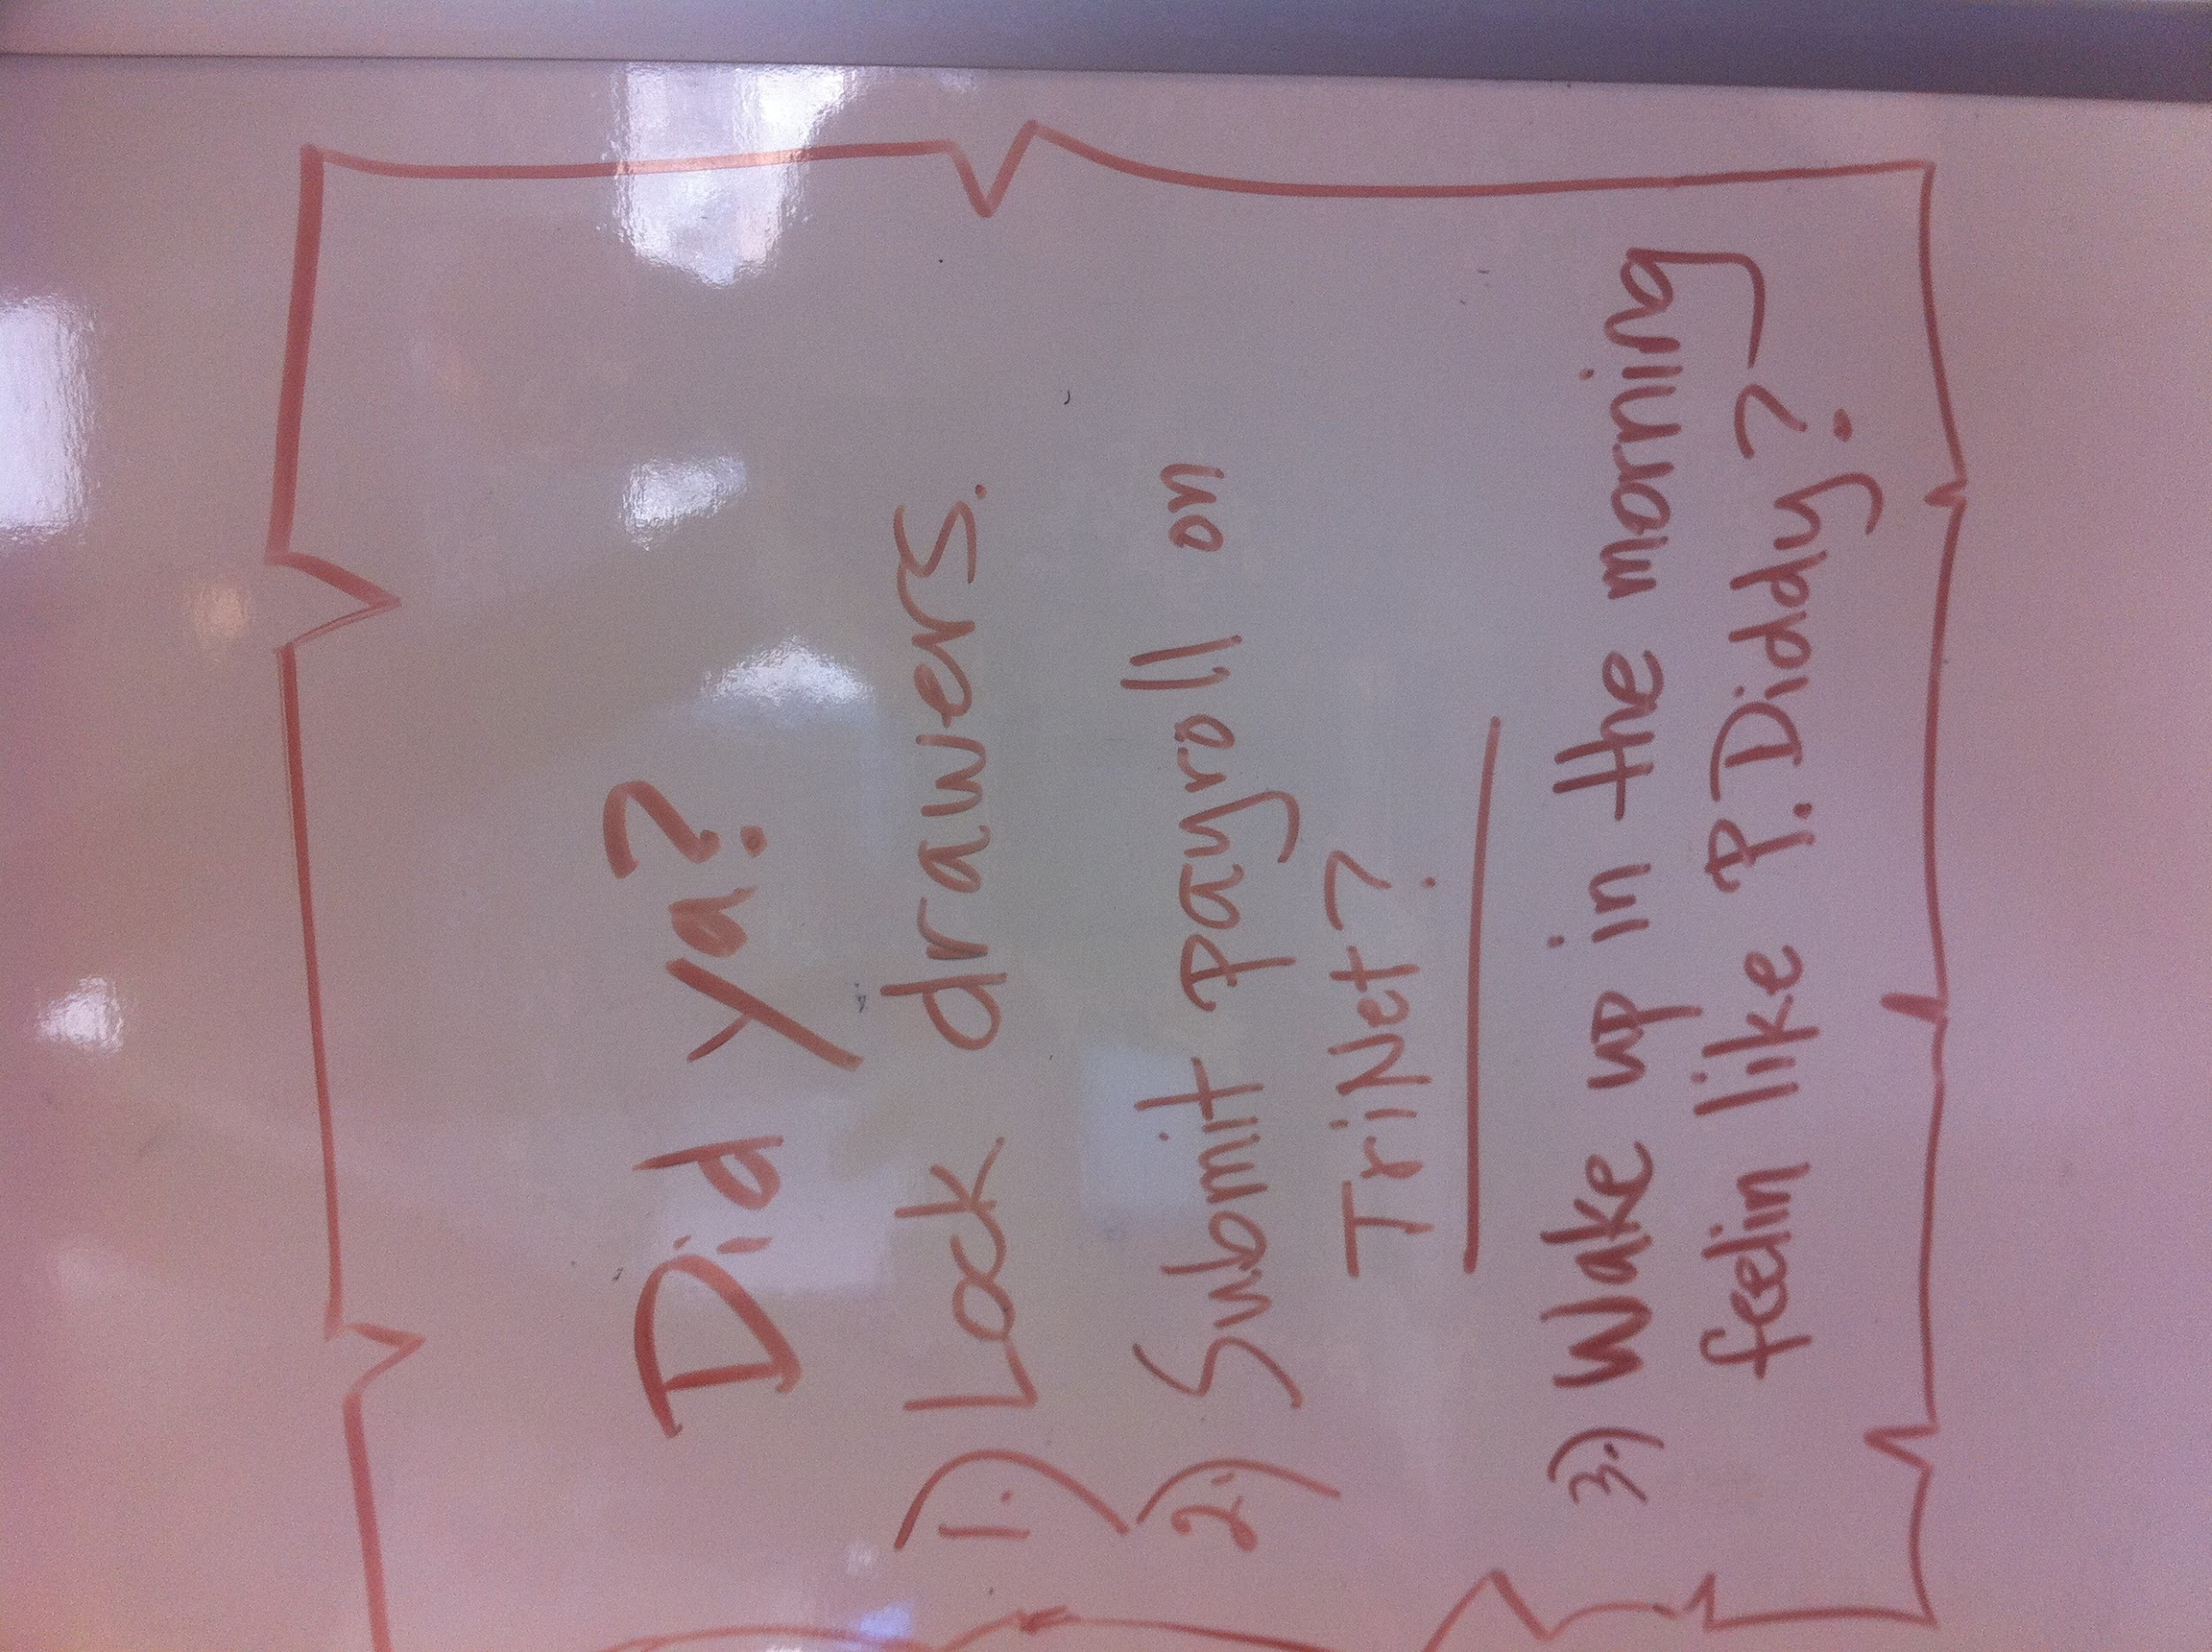 Did ya?
1.) Lock drawers.
2.) Submit payroll on
TriNet?
3.) Wake up in the morning
feelin like P. Diddy?